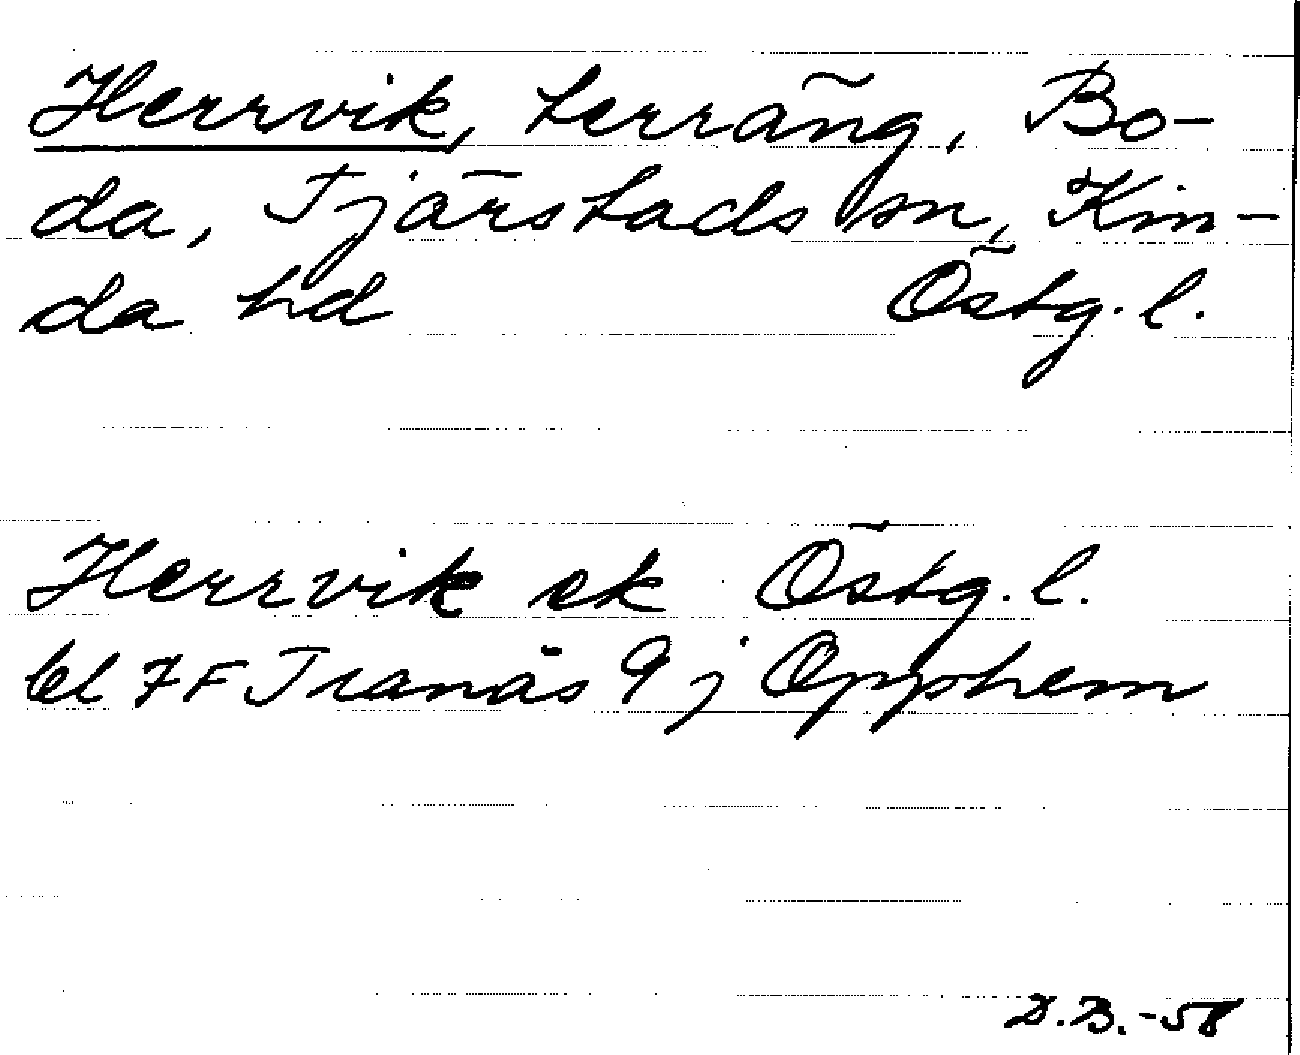 Herrvik, terräng, Bo-
da, Tjärstads sn, Kin-
da hd Östg. l.
Herrvik ek Östg. l.
bl 7F Tranås 9 j Opphem
D.B.-58